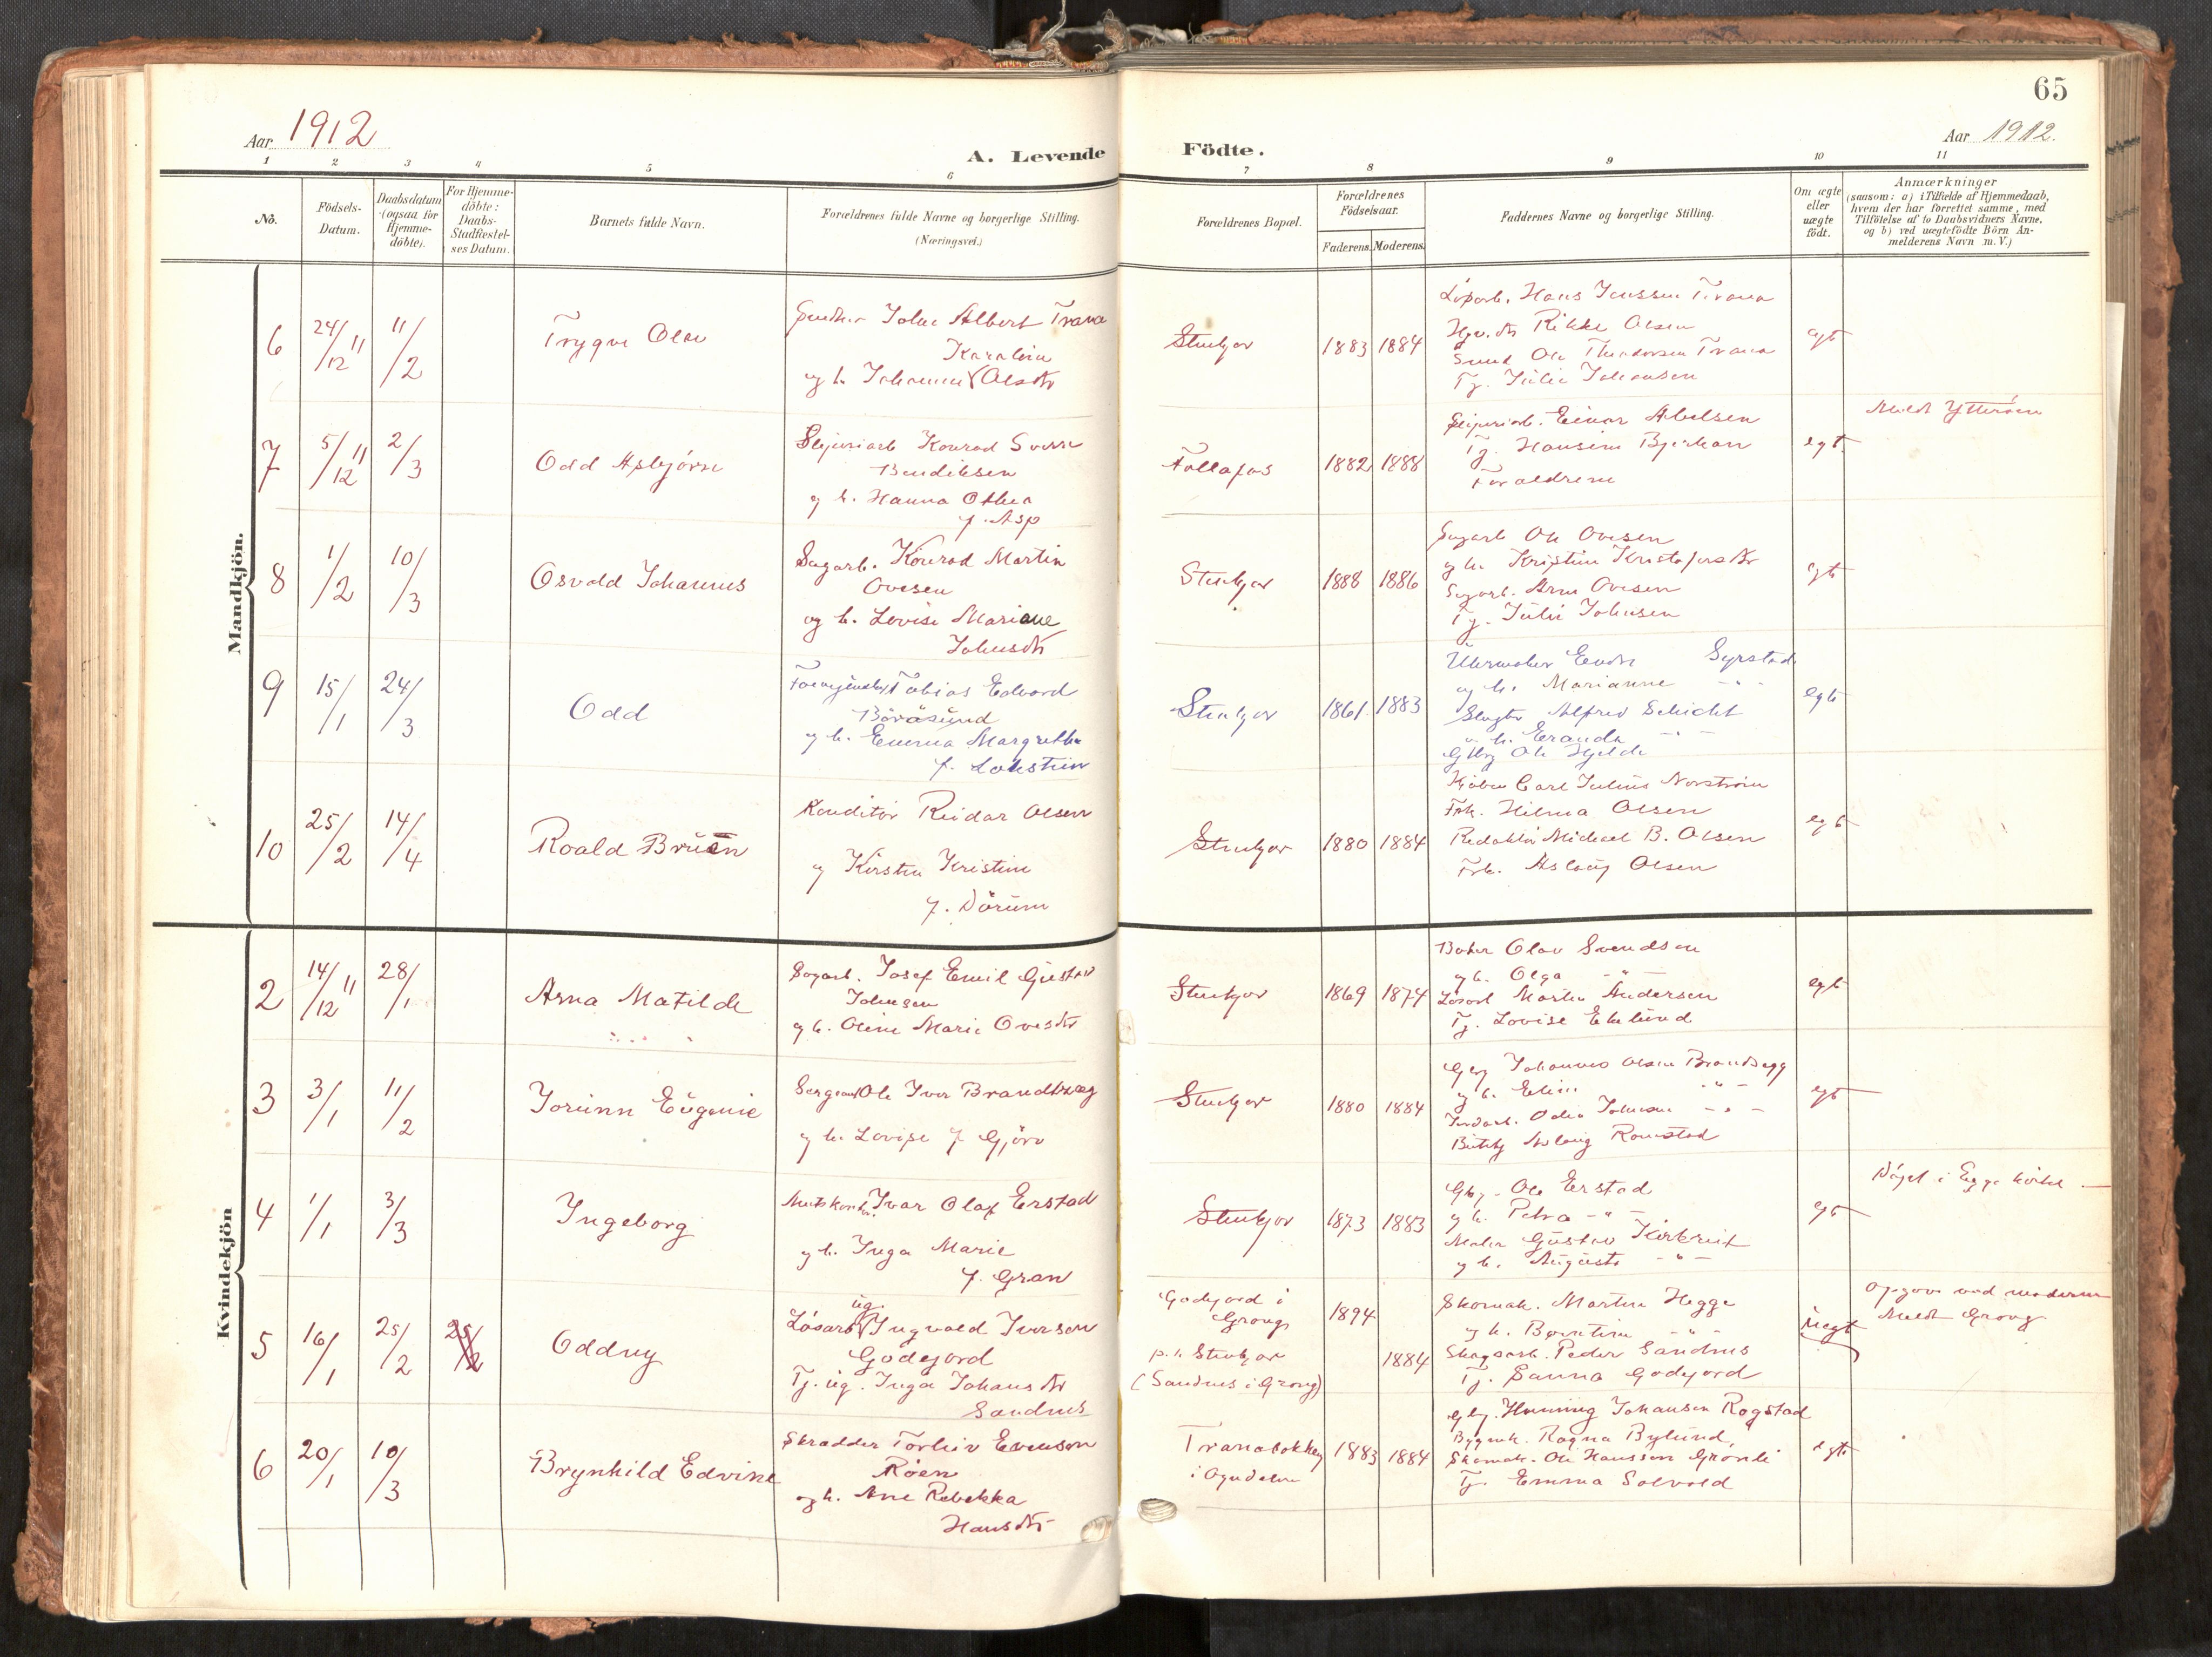 65
Aar 1912
Aar 1912.
A. Levende Födte.
1 2 3 4 5 6 7 8 9 10 11
No.
Födsels-
Datum.
Daabsdatum
(ogsaa for
Hjemme-
döbte).
For Hjemme-
döbte:
Daabs-
Stadfæstel-
ses Datum.
Barnets fulde Navn.
Forældrenes fulde Navne og borgerlige Stilling.
(Næringsvei.)
Forældrenes Bopæl.
Forældrenes
Födselsaar.
Faderens. Moderens.
Faddernes Navne og borgerlige Stilling.
Om ægte
eller
uægte
födt.
Anmærkninger
(saasom: a) i Tilfælde af Hjemmedaab,
hvem der har forrettet samme, med
Tilföielse af to Daabsvidners Navne,
og b) ved uægtefödte Börn An-
melderens Navn m. V.)
Mandkjön.
6
24/12 11
11/2
Trygve Olav
John Albert Trana
Karoline
og h. Johanna Olsdtr
Stenkjær
1883 1884
Lösarb. Hans Jenssen Trana
Rikke Olsen
Smed Ole Theodorsen Trana
Tj. Julie Johansen
egt
7
5/12 11
2/3
Odd Asbjörn
Sliperiarb Konrad Sverre
Bendiksen
og h. Hanna Othea
f. Asp
Follafos
1882 1888
Sliperiarb. Einar Abelsen
Tj. Hansine Bjerkan
Forældrene
egt
Meldt Ytteröen
8
1/2
10/3
Osvald Johannes
Sagarb. Konrad Martin
Ovesen
og h. Lovise Mariane
Johnsdtr
Stenkjær
1888 1886
Sagarb Ole Ovesen
og h. Kristine Kristofersdtr
Sagarb. Arne Ovesen
Tj. Julie Johnsen
egt
9
15/1
24/3
Odd
Tobias Edvard
Böråsund
og h. Emma Margrethe
f. Lökstein
Stenkjær
1861. 1883
Uhrmaker Endre Syrstad
og h. Marianne -"-
Slagter Alfred Schicht
og h. -"-
Gbrg Ole Hjelde
egt
10
25/2
14/4
Roald Bruen
Konditor Reidar Olsen
og Kirsten Kristine
f. Dörum
Stenkjær
1880 1884
Carl Julius Norström
Frk. Hilma Olsen
Redaktör Michael B. Olsen
Frk. Aslaug Olsen
egt
Kvindekjön
2
14/12 11
28/1
Arna Matilde
Sagarb. Josef Emil Gustav
Johnsen
og h. Oline Marie Ovesdtr
Stenkjær
1869 1874
Baker Olav Svendsen
og h. Olga -"-
Lösarb Martin Andersen
Tj. Lovise Eklund
egt
3
3/1
11/2
Jorunn Eugenie
Sergeant Ole Iver Brandtzæg
og h. Lovise f Gjörv
Stenkjær
1880 1884
Gbrg Johannes Olsen Brandsegg
og h. Elise -"-
Jordarb. Odin Johnsen -"-
Aslaug Romstad
egt
4
1/1
3/3
Ingeborg
Ivar Olaf Erstad
og h. Inga Marie
f. Gran
Stenkjær
1873 1883
Gbrg. Ole Erstad
og h. Petra -"-
Maler Gustav Kirkreit
og h. Augusta -"-
egt
Döpt i Egge kirke —
5
16/1
25/2
25/2
Oddny
ug.
Lösarb Ingvald Iversen
Godejord
Tj. ug. Inga Johansdtr
Sandnes
Godejord i
Grong
p.t. Stenkjær
(Sandnes i Grong)
1894
1884
Skomak. Martin Hegge
og h. Berntine -"-
Skogsarb. Peder Sandnes
Tj. Sanna Godejord
uegt
Opgave ved moderen
Meldt Grong
6
20/1
10/3
Brynhild Edvine
Skrædder Torleiv Evensen
Röen
og h. Ane Rebekka
Hansdtr
Tranabakken
i Ogndalen
1883 1884
Gbrg. Henning Johansen Rogstad
Ragna Bylund,
Skomak. Ole Hanssen Grönli
Tj. Emma Solvold
egt